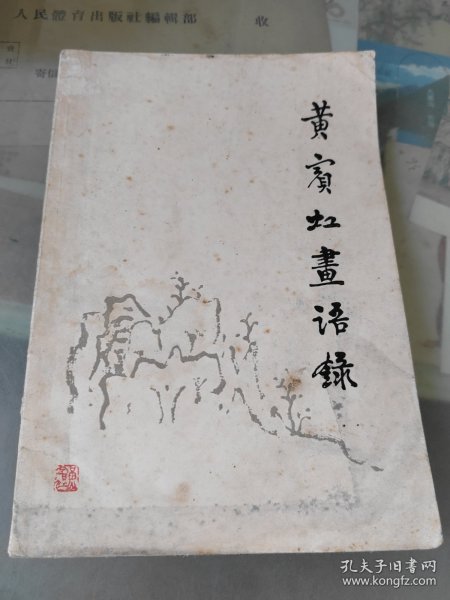 人民體育出版社編輯部
收
寄信
黄賓虹畫語錄
孔夫子旧书网
www.kongfz.com